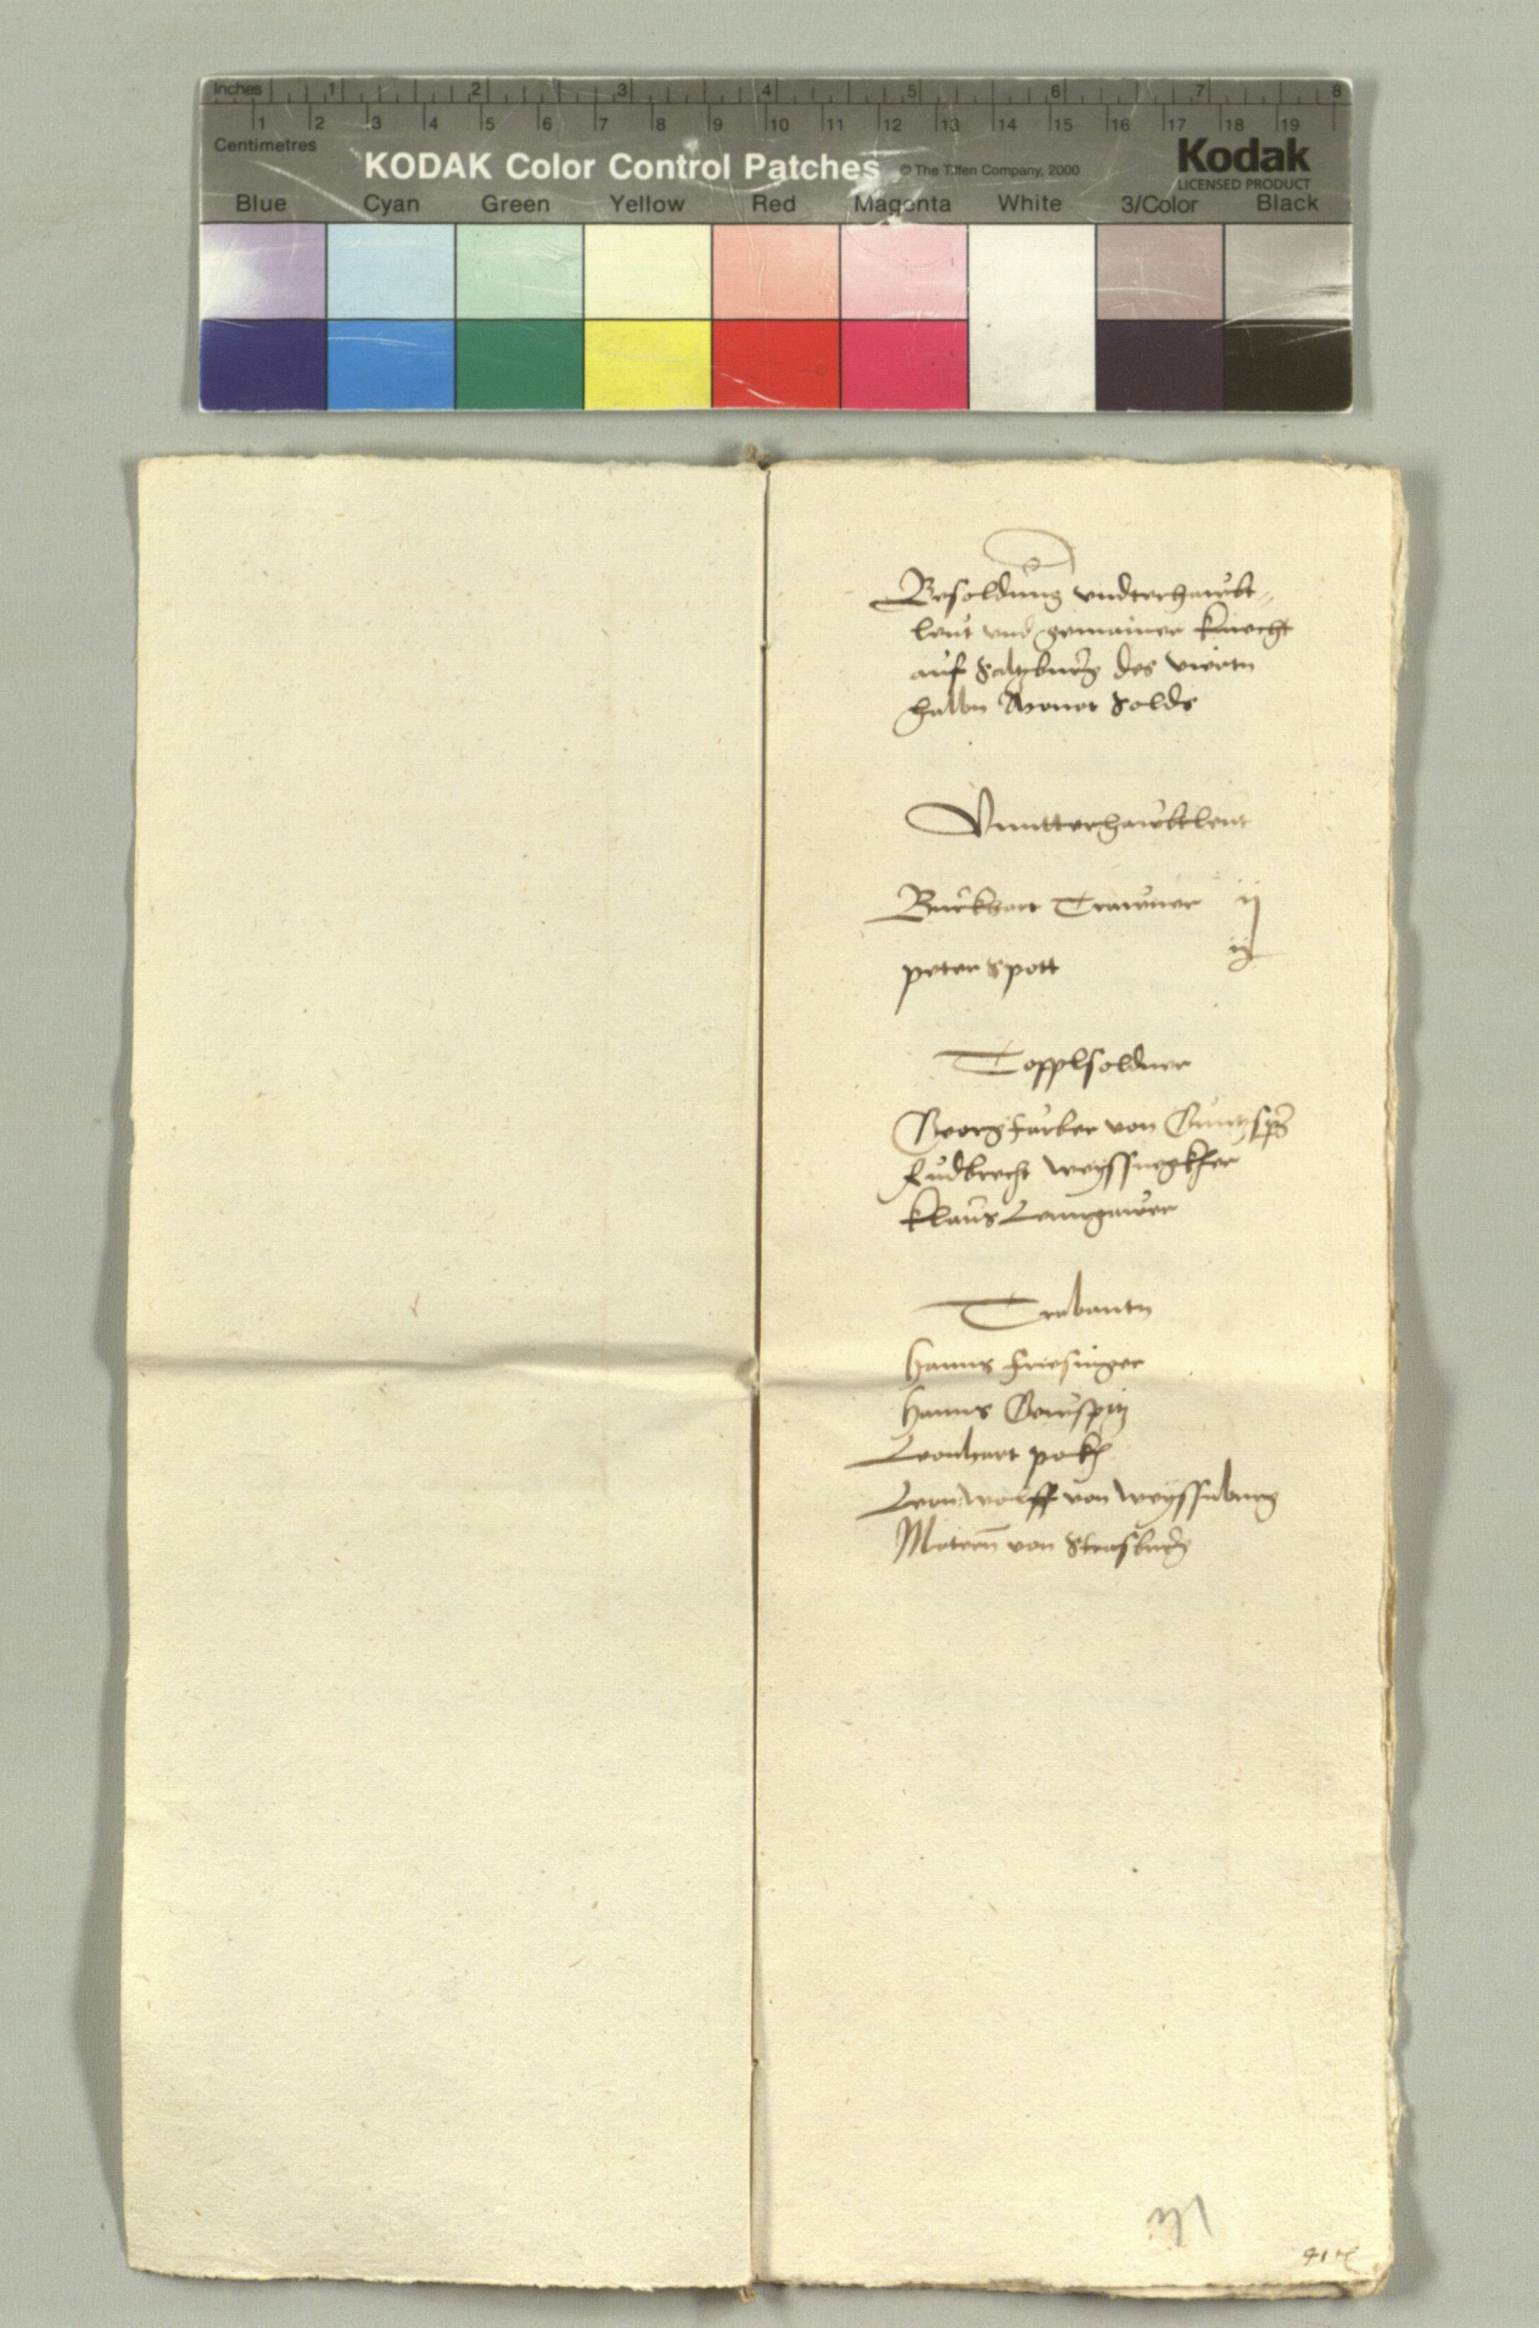 Inches 1 2 3 4 5 6 7 8
1 2 3 4 5 6 7 8 9 10 11 12 13 14 15 16 17 18 19
Centimetres
KODAK Color Control Patches © The Tiffen Company, 2000 Kodak
LICENSED PRODUCT
Blue Cyan Green Yellow Red Magenta White 3/Color Black
Besoldung vndterhawbt-
leut vnd gemainer knecht
auf Saltzburg des viertn
halbn Monet Solds
Vnntterhawbtleut
Burkhart Trawner ij
peter Spott ij
Topplsoldner
Georg farber von
Rudbrecht
Klaus Lanngawer
Trabantn
Hanns Friesinger
Hanns
Leonhart pokh
Leon wolff von weyssnburg
Matern von Strasburg